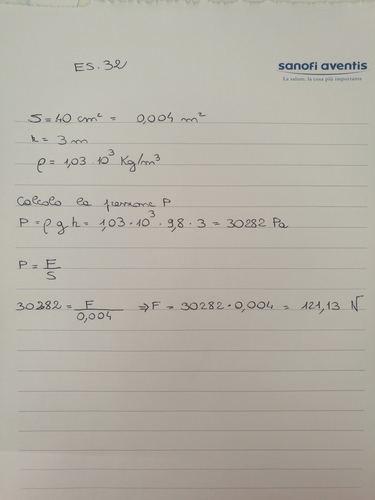 ES. 32
sanofi aventis
La salute, la cosa più importante
S = 40 cm² = 0,004 m²
h = 3 m
ρ = 1,03 · 10³ Kg/m³
Calcolo la pressione P
P = ρ g h = 1,03 · 10³ · 9,8 · 3 = 30282 Pa
P = F/S
30282 = F/0,004 ⇒ F = 30282 · 0,004 = 121,13 N